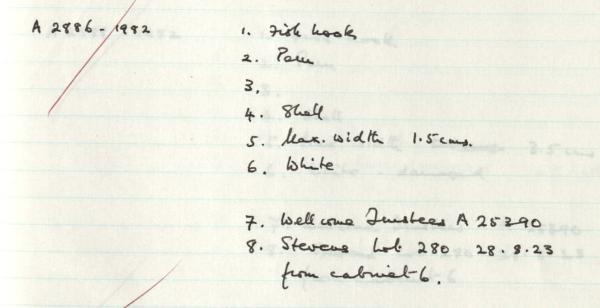 A 2886-1982
1. Fish hooks
2.
3.
4. Shell
5. Max. width 1.5 cms.
6. White
7. Wellcome Trustees A 25390
8. Stevens Lot 280 28.8.23
from cabinet 6.